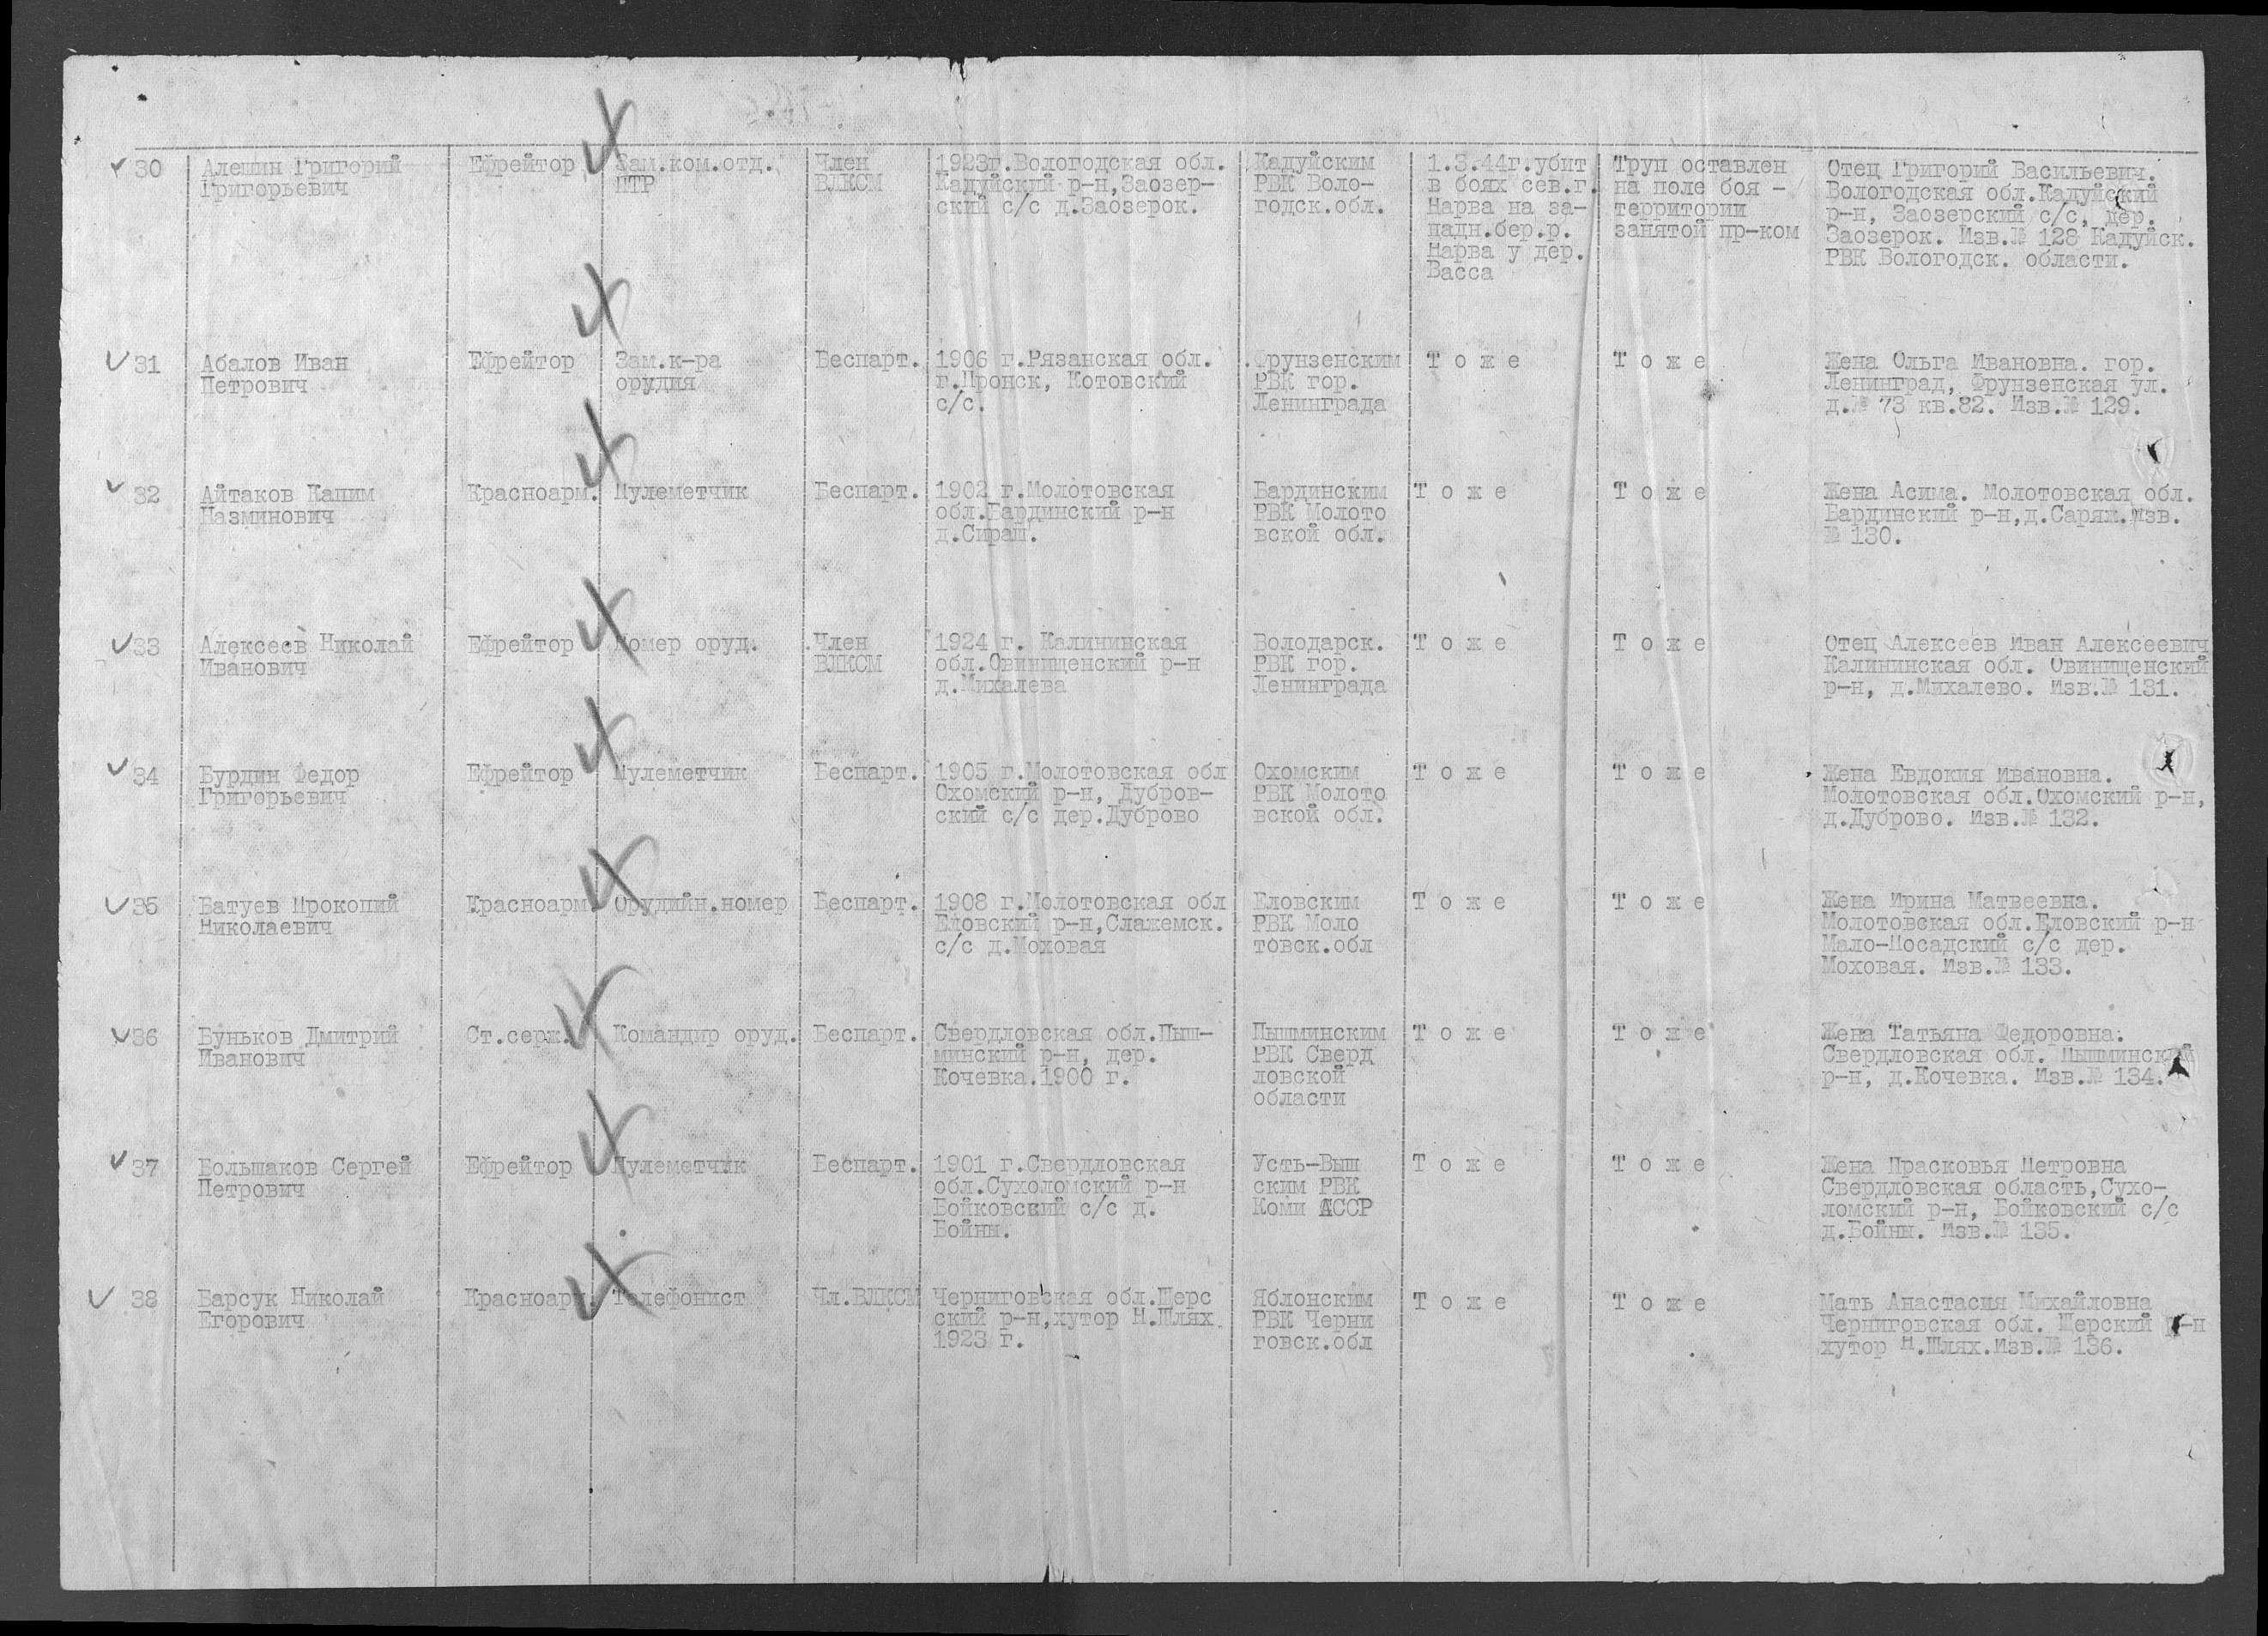 30
Алешин Григорий
Григорьевич
Ефрейтор
Зам.ком.отд.
ПТР
Член
ВЛКСМ
1923г.Вологодская обл.
Кадуйский р-н,Заозер-
ский с/с д.Заозерок.
Кадуйским
РВК Воло-
годск.обл.
1.3.44г.убит
в боях сев.г.
Нарва на за-
падн.бер.р.
Нарва у дер.
Васса
Труп оставлен
на поле боя -
территории
занятой пр-ком
Отец Григорий Васильевич.
Вологодская обл.Кадуйский
р-н, Заозерский с/с, дер.
Заозерок. Изв.№ 128 Кадуйск.
РВК Вологодск. области.
31
Абалов Иван
Петрович
Ефрейтор
Зам.к-ра
орудия
Беспарт.
1906 г.Рязанская обл.
г.Пронск, Котовский
с/с.
Фрунзенским
РВК гор.
Ленинграда
Т о ж е
Т о ж е
Жена Ольга Ивановна. гор.
Ленинград, Фрунзенская ул.
д.№ 73 кв.82. Изв.№ 129.
32
Айтаков Капим
Назминович
Красноарм.
Пулеметчик
Беспарт.
1902 г.Молотовская
обл.Бардинский р-н
д.Сираш.
Бардинским
РВК Молото
вской обл.
Т о ж е
Т о ж е
Жена Асима. Молотовская обл.
Бардинский р-н,д.Саряж.Изв.
№ 130.
33
Алексеев Николай
Иванович
Ефрейтор
Номер оруд.
Член
ВЛКСМ
1924 г. Калининская
обл.Овинищенский р-н
д.Михалева
Володарск.
РВК гор.
Ленинграда
Т о ж е
Т о ж е
Отец Алексеев Иван Алексеевич
Калининская обл. Овинищенский
р-н, д.Михалево. Изв.№ 131.
34
Бурдин Федор
Григорьевич
Ефрейтор
Пулеметчик
Беспарт.
1905 г.Молотовская обл
Охомский р-н, Дубров-
ский с/с дер.Дуброво
Охомским
РВК Молото
вской обл.
Т о ж е
Т о ж е
Жена Евдокия Ивановна.
Молотовская обл.Охомский р-н,
д.Дуброво. Изв.№ 132.
35
Батуев Прокопий
Николаевич
Красноарм.
Орудийн.номер
Беспарт.
1908 г.Молотовская обл
Еловский р-н,Слажемск.
с/с д.Моховая
Еловским
РВК Моло
товск.обл
Т о ж е
Т о ж е
Жена Ирина Матвеевна.
Молотовская обл.Еловский р-н
Мало-Посадский с/с дер.
Моховая. Изв.№ 133.
36
Буньков Дмитрий
Иванович
Ст.серж.
Командир оруд.
Беспарт.
Свердловская обл.Пыш-
минский р-н, дер.
Кочевка.1900 г.
Пышминским
РВК Сверд
ловской
области
Т о ж е
Т о ж е
Жена Татьяна Федоровна.
Свердловская обл. Пышминский
р-н, д.Кочевка. Изв.№ 134.
37
Большаков Сергей
Петрович
Ефрейтор
Пулеметчик
Беспарт.
1901 г.Свердловская
обл.Сухоломский р-н
Бойковский с/с д.
Бойны.
Усть-Вып
ским РВК
Коми АССР
Т о ж е
Т о ж е
Жена Прасковья Петровна
Свердловская область,Сухо-
ломский р-н, Бойковский с/с
д.Бойны. Изв.№ 135.
38
Барсук Николай
Егорович
Красноарм.
Телефонист
Чл.ВЛКСМ
Черниговская обл.Щерс
ский р-н,хутор Н.Шлях.
1923 г.
Яблонским
РВК Черни
говск.обл
Т о ж е
Т о ж е
Мать Анастасия Михайловна
Черниговская обл. Щерский р-н
хутор Н.Шлях.Изв.№ 136.